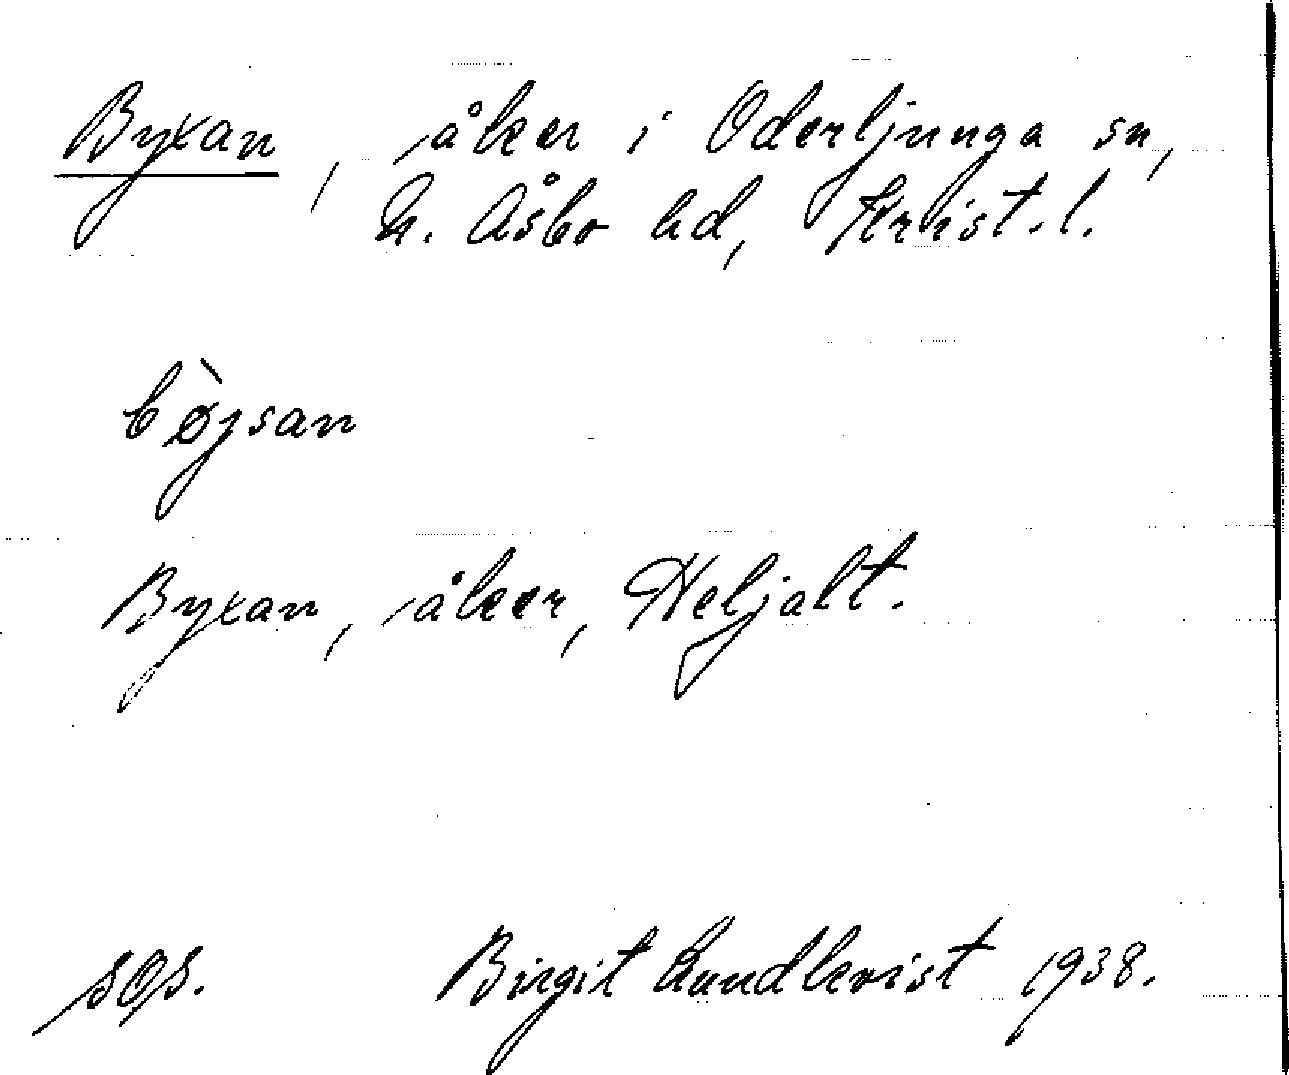 Byxan, åker i Oderljunga sn,
N. Åsbo hd, Krist. l.
bø̀jsan
Byxan, åker, Heljalt.
sqs.
Birgit Lundkvist 1938.